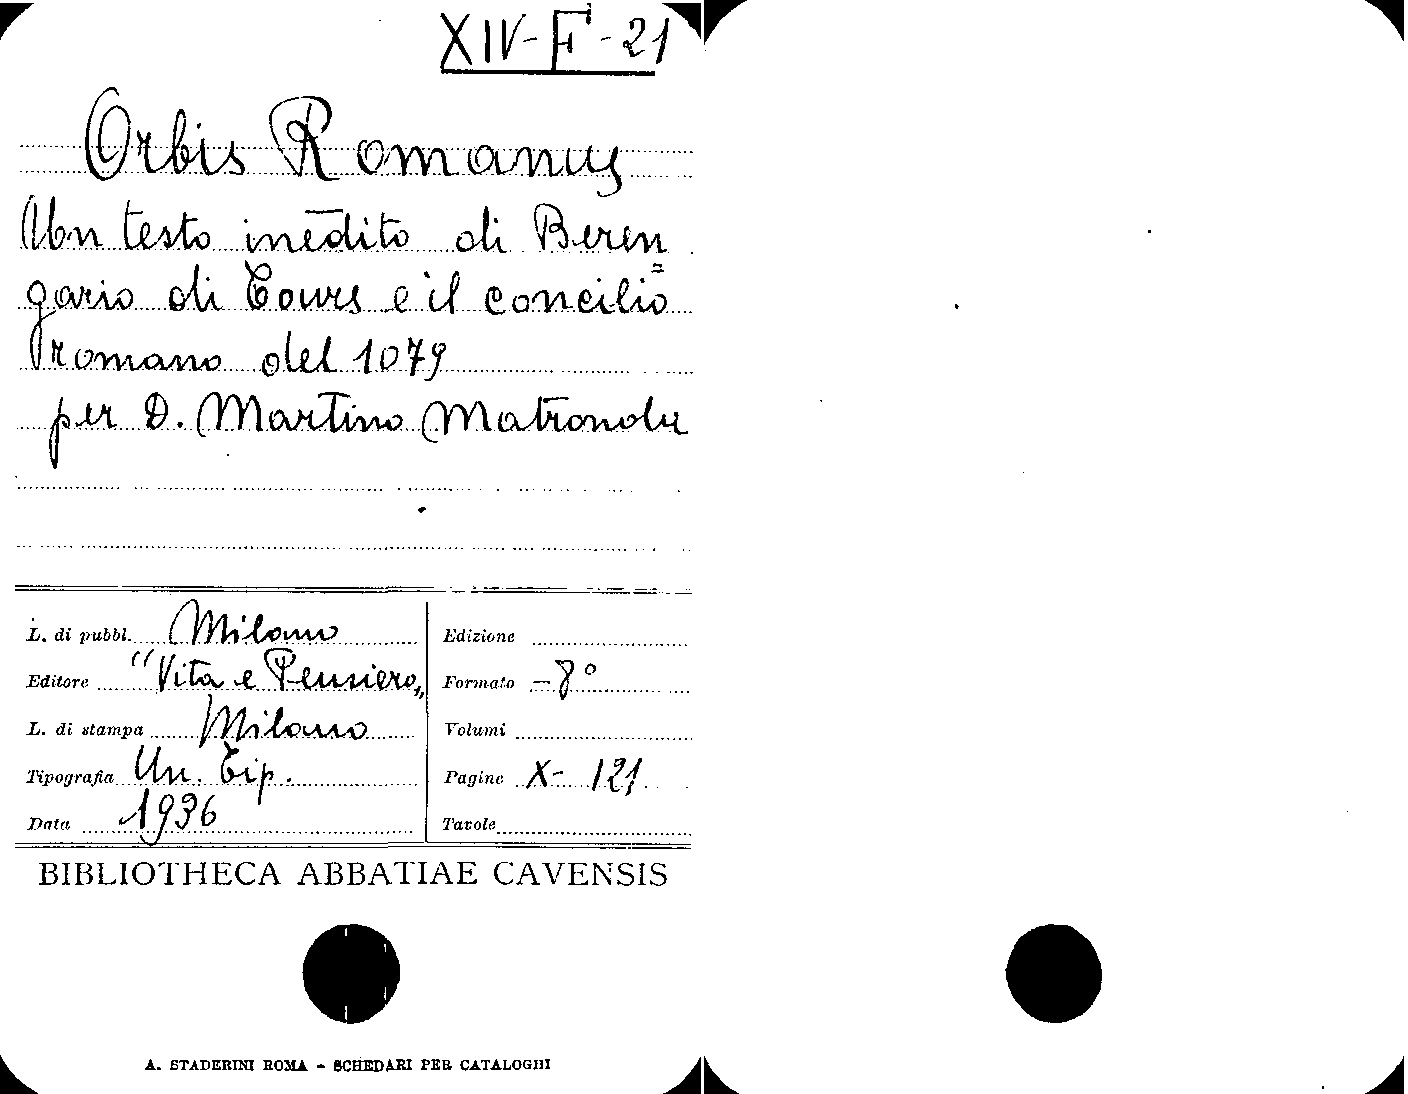 XIV-F-21
Orbis Romanus
Un testo inedito di Beren=
gario di Tours e il concilio
romano del 1079
per D. Martino Matronola
L. di pubbl. Milano
Editore "Vita e Pensiero„
L. di stampa Milano
Tipografia Un. Tip.
Data 1936
Edizione
Formato -8°
Volumi
Pagine X- 121
Tavole
BIBLIOTHECA ABBATIAE CAVENSIS
A. STADERINI ROMA - SCHEDARI PER CATALOGHI